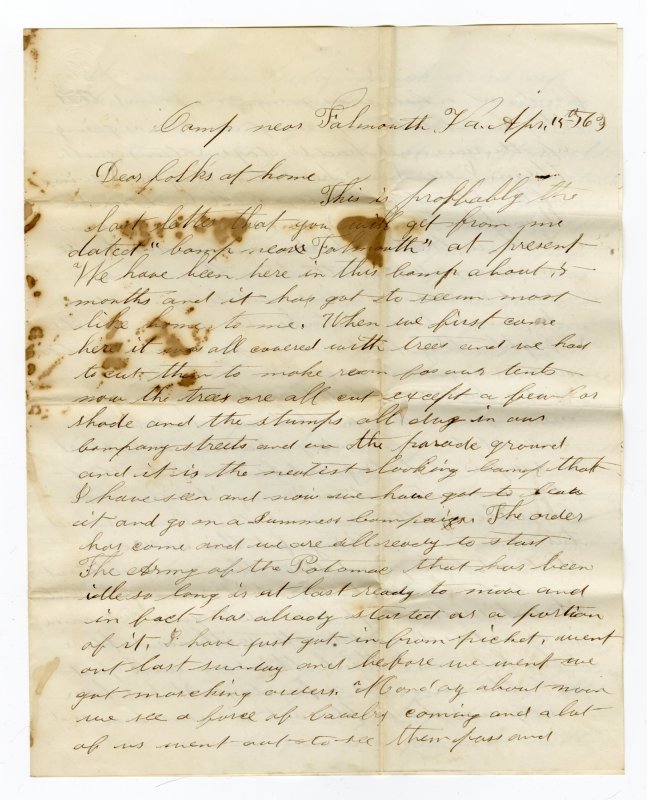 Camp near Falmouth, Va. Apr. 15th /63
Dear folks at home
This is profbably the
last letter that you will get from me
dated "Camp near Falmouth" at present
We have been here in this Camp about 5
months and it has got to seem most
like home to me. When we first came
here it was all covered with trees and we had
to cut them to make room for our tents
now the trees are all cut except a few for
shade and the stumps all dug in our
Company streets and on the parade ground
and it is the neatist looking Camp that
I have seen and now we have got to leav
it and go on a Summers Campaign. The order
has come and we are all ready to start
The Army of the Potomac that has been
idle so long is at last ready to move and
in fact has already started or a portion
of it, I have just got in from picket, went
out last sunday and before we went we
got marching orders. Monday about noon
we see a force of Cavelry coming and a lot
of us went out to see them pass and